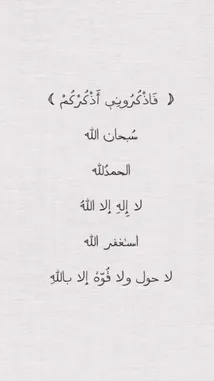 ﴿ فَاذْكُرُونِي أَذْكُرْكُمْ ﴾
سُبحان الله
الحمدُلله
لا إِلهِ إلا اللهُ
استغفر الله
لا حول ولا قُوّةَ إلا باللهِ